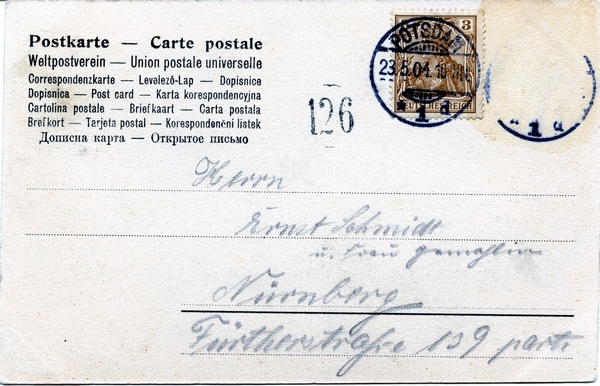 Postkarte — Carte postale
Weltpostverein — Union postale universelle
Correspondenzkarte — Levelező-Lap — Dopisnice
Dopisnica — Post card — Karta korespondencyjna
Cartolina postale — Briefkaart — Carta postala
Brefkort — Tarjeta postal — Korespondenční listek
Дописна карта — Открытое письмо
3
POTSDAM
23.5.04. 10
DEUTSCHES REICH
* 1 d
1 d
126
Herrn
Ernst Schmidt
u. Frau Gemahlin
Nürnberg
Fürtherstraße 139 part.